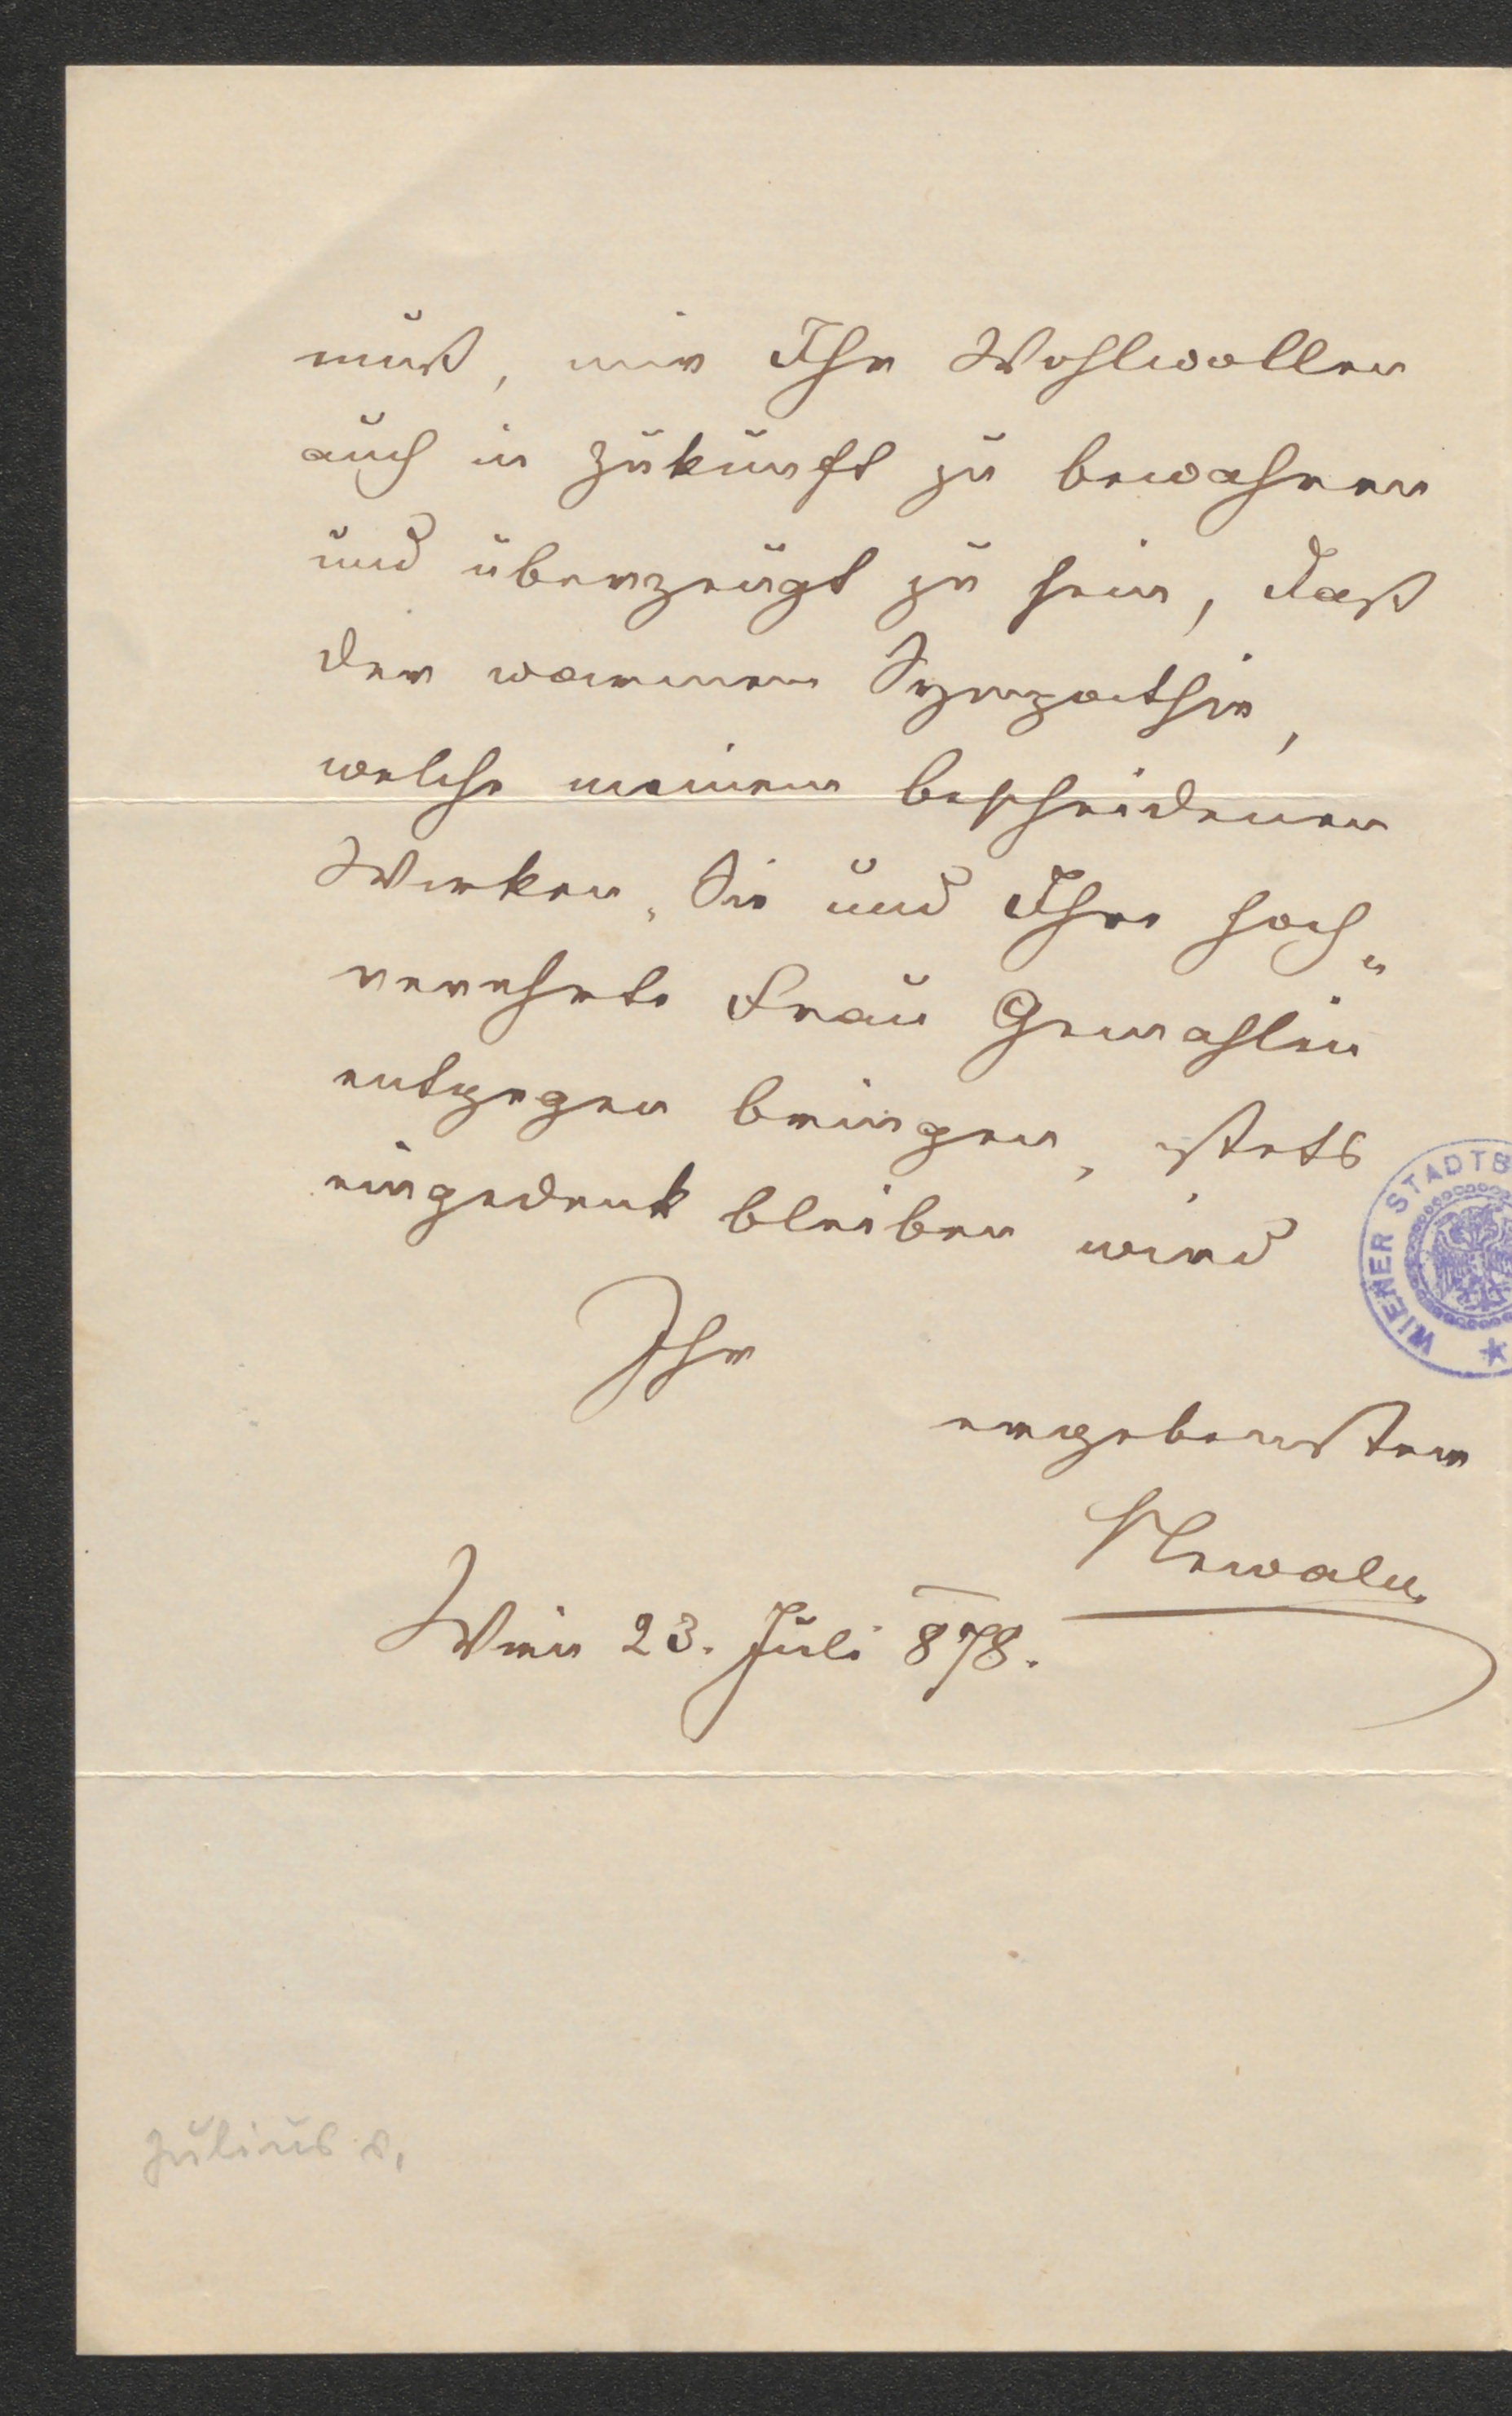 muß, mir Ihr Wohlwollen
auch in Zukunft zu bewahren
und überzeugt zu sein, daß
der warmen Sympathie,
welche meinem bescheidenen
Wirken, Sie und Ihre hoch„
verehrte Frau Gemahlin
entgegen bringen, stets
eingedenk bleiben wird
Ihr
ergebenster
Newald
Wien 23. Juli 878.
WIENER STADTB
Julius v.